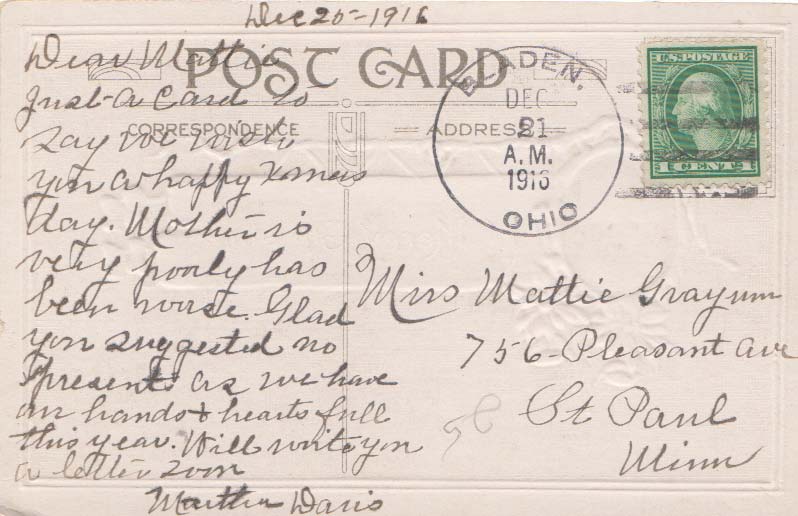 Dec 20-1916
Dear Mattie
POST CARD
Just a Card to
say we wish
CORRESPONDENCE
you a happy Xmas
day. Mother is
very poorly has
been worse. Glad
you suggested no
presents as we have
our hands & hearts full
this year. Will write you
a letter soon
Martha Davis
ADDRESS
BLADEN,
DEC
21
A.M.
1916
OHIO
U.S. POSTAGE
1 CENT 1
Miss Mattie Grayum
756-Pleasant Ave
St Paul
Minn